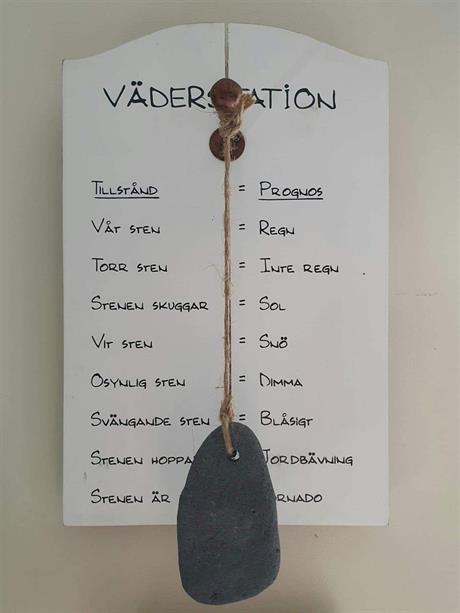 VÄDERSTATION
TILLSTÅND = PROGNOS
VÅT STEN = REGN
TORR STEN = INTE REGN
STENEN SKUGGAR = SOL
VIT STEN = SNÖ
OSYNLIG STEN = DIMMA
SVÄNGANDE STEN = BLÅSIGT
STENEN HOPPAR JORDBÄVNING
STENEN ÄR TORNADO